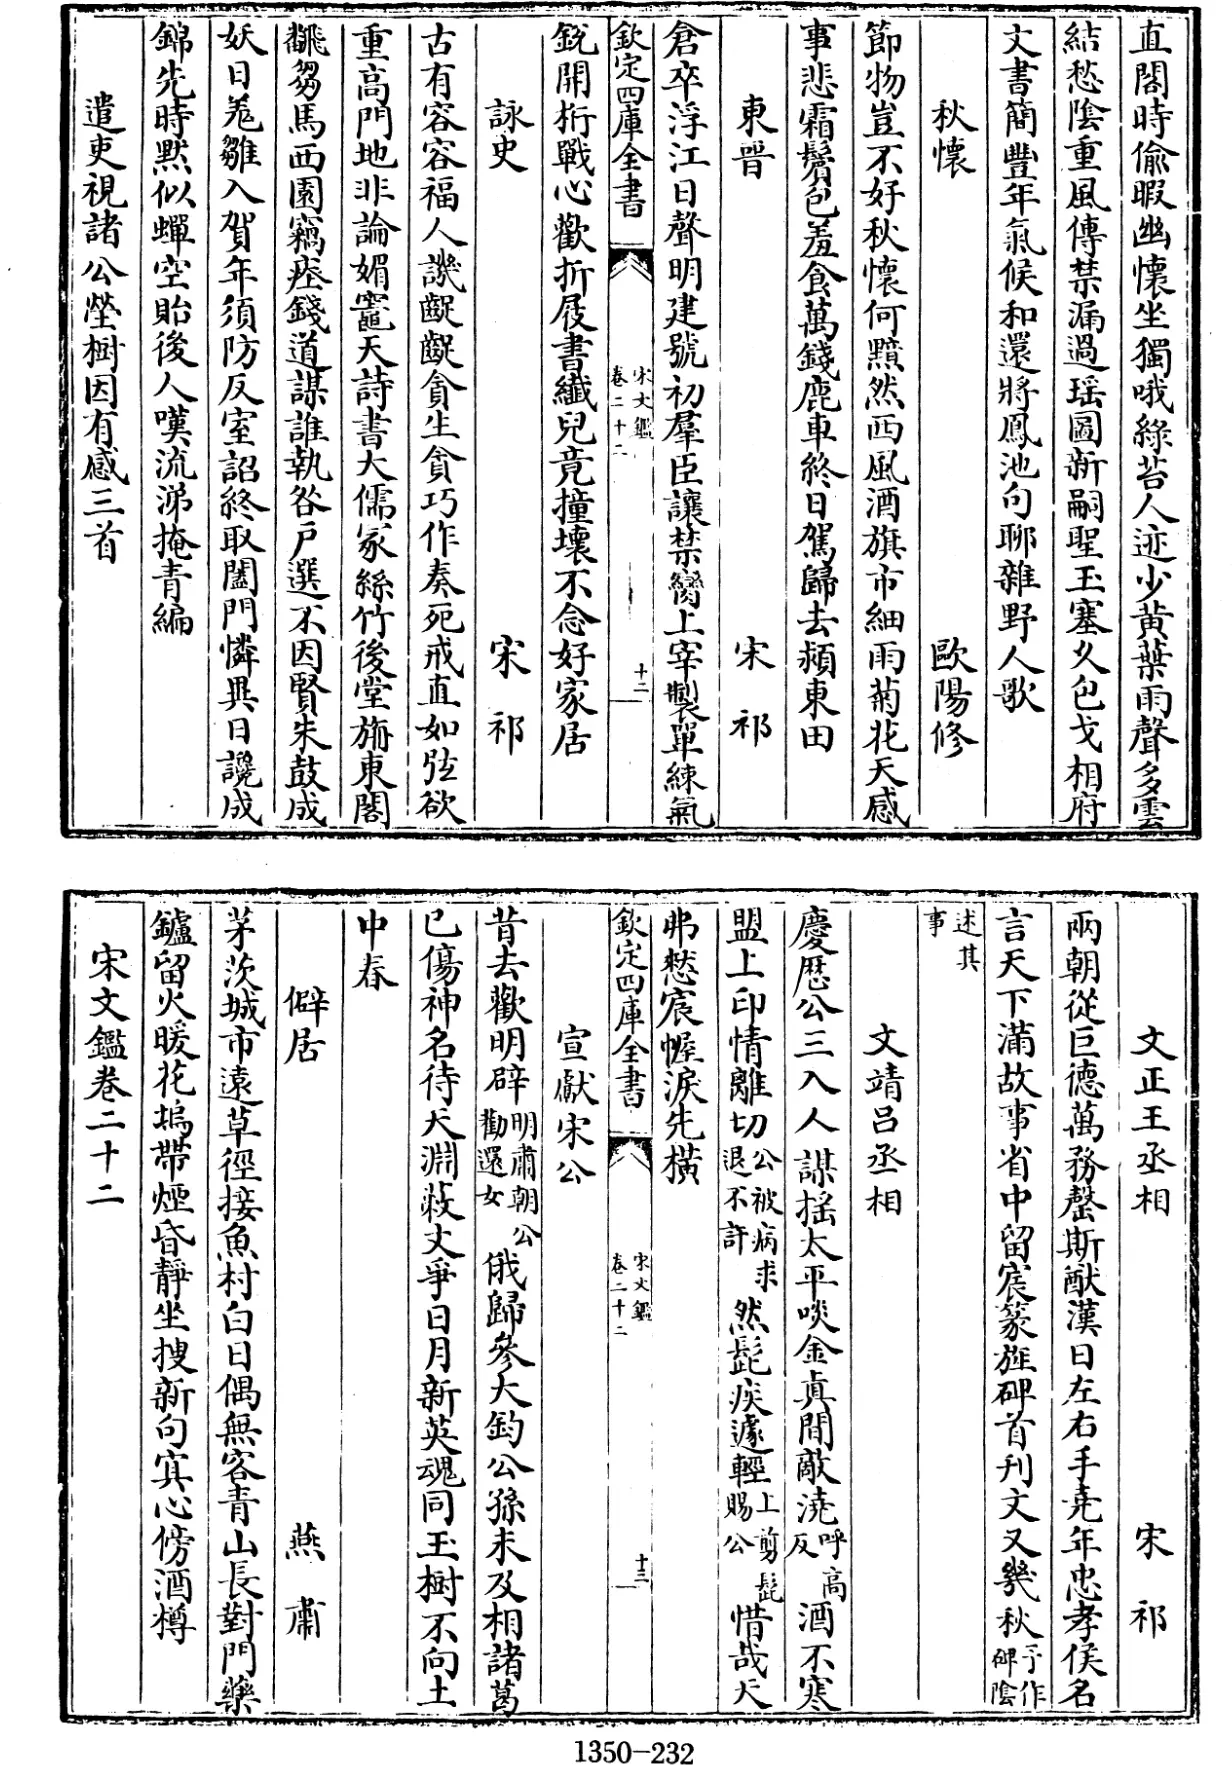 直閣時偷暇幽懷坐獨哦綠苔人迹少黃葉雨聲多雲
結愁陰重風傳禁漏過瑤圖新嗣聖玉塞久包戈相府
文書簡豐年氣候和還將鳳池句聊雜野人歌
秋懷 歐陽修
節物豈不好秋懷何黯然西風酒旗市細雨菊花天感
事悲霜鬢包羞食萬錢鹿車終日駕歸去潁東田
東晉 宋祁
倉卒浮江日聲明建號初羣臣讓禁臠上宰製單練氣
欽定四庫全書 宋文鑑 卷二十二 十二
銳開桁戰心歡折屐書纖兒竟撞壞不念好家居
詠史 宋祁
古有容容福人譏齪齪貪生貪巧作奏死戒直如弦欲
重高門地非論媚竈天詩書大儒冢絲竹後堂旃東閣
飜芻馬西園竊瘞錢道謀誰執咎戶選不因賢朱鼓成
妖日菟雛入賀年須防反室詔終取闔門憐異日讒成
錦先時默似蟬空貽後人嘆流涕掩青編
遣吏視諸公塋樹因有感三首
文正王丞相 宋祁
兩朝從巨德萬務罄斯猷漢日左右手堯年忠孝侯名
言天下滿故事省中留宸篆旌碑首刊文又幾秋予作碑陰
述其事
文靖呂丞相
慶厯公三入人謀揺太平啖金真間敵澆呼高反酒不寒
盟上印情離切公被病求退不許然髭疾遽輕上剪髭賜公惜哉天
弗憖宸幄淚先橫
欽定四庫全書 宋文鑑 卷二十二 十三
宣獻宋公
昔去歡明辟明肅朝公勸還女俄歸參大鈞公孫未及相諸葛
已傷神名待天淵蔽文爭日月新英魂同玉樹不向土
中春
僻居 燕肅
茅茨城市遠草徑接魚村白日偶無客青山長對門藥
鑪留火暖花塢帶煙昏靜坐搜新句冥心傍酒樽
宋文鑑卷二十二
1350-232